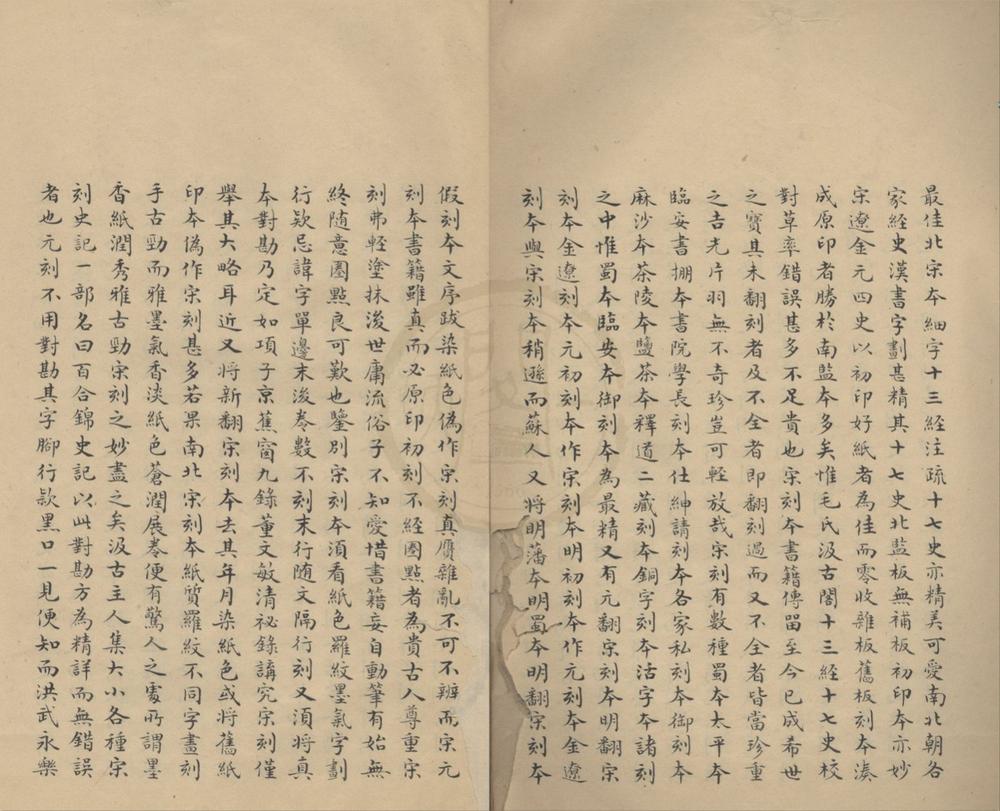 最佳北宋本細字十三經注疏十七史亦精美可愛南北朝各
家經史漢書字劃甚精其十七史北監板無補板初印本亦妙
宋遼金元四史以初印好紙者為佳而零收雜板舊板刻本湊
成原印者勝於南監本多矣惟毛氏汲古閣十三經十七史校
對草率錯誤甚多不足貴也宋刻本書籍傳留至今已成希世
之寶其未翻刻者及不全者即翻刻過而又不全者皆當珍重
之吉光片羽無不奇珍豈可輕放哉宋刻有數種蜀本太平本
臨安書棚本書院學長刻本仕紳請刻本各家私刻本御刻本
麻沙本茶陵本鹽茶本釋道二藏刻本銅字刻本活字本諸刻
之中惟蜀本臨安本御刻本為最精又有元翻宋刻本明翻宋
刻本金遼刻本元初刻本作宋刻本明初刻本作元刻本金遼
刻本與宋刻本稍遜而蘇人又將明藩本明蜀本明翻宋刻本
假刻本文序跋染紙色偽作宋刻真贋雜亂不可不辨而宋元
刻本書籍雖真而必原印初刻不經圈點者為貴古人尊重宋
刻弗輕塗抹後世庸流俗子不知愛惜書籍妄自動筆有始無
終隨意圈點良可歎也鑒別宋刻本須看紙色羅紋墨氣字劃
行欵忌諱字單邊末後卷數不刻末行随文隔行刻又須將真
本對勘乃定如項子京蕉窗九錄董文敏清祕錄講究宋刻僅
舉其大略耳近又將新翻宋刻本去其年月染紙色或將舊紙
印本偽作宋刻甚多若果南北宋刻本紙質羅紋不同字畫刻
手古勁而雅墨氣香淡紙色蒼潤展卷便有驚人之處所謂墨
香紙潤秀雅古勁宋刻之妙盡之矣汲古主人集大小各種宋
刻史記一部名曰百合錦史記以此對勘方為精詳而無錯誤
者也元刻不用對勘其字腳行欵黑口一見便知而洪武永樂